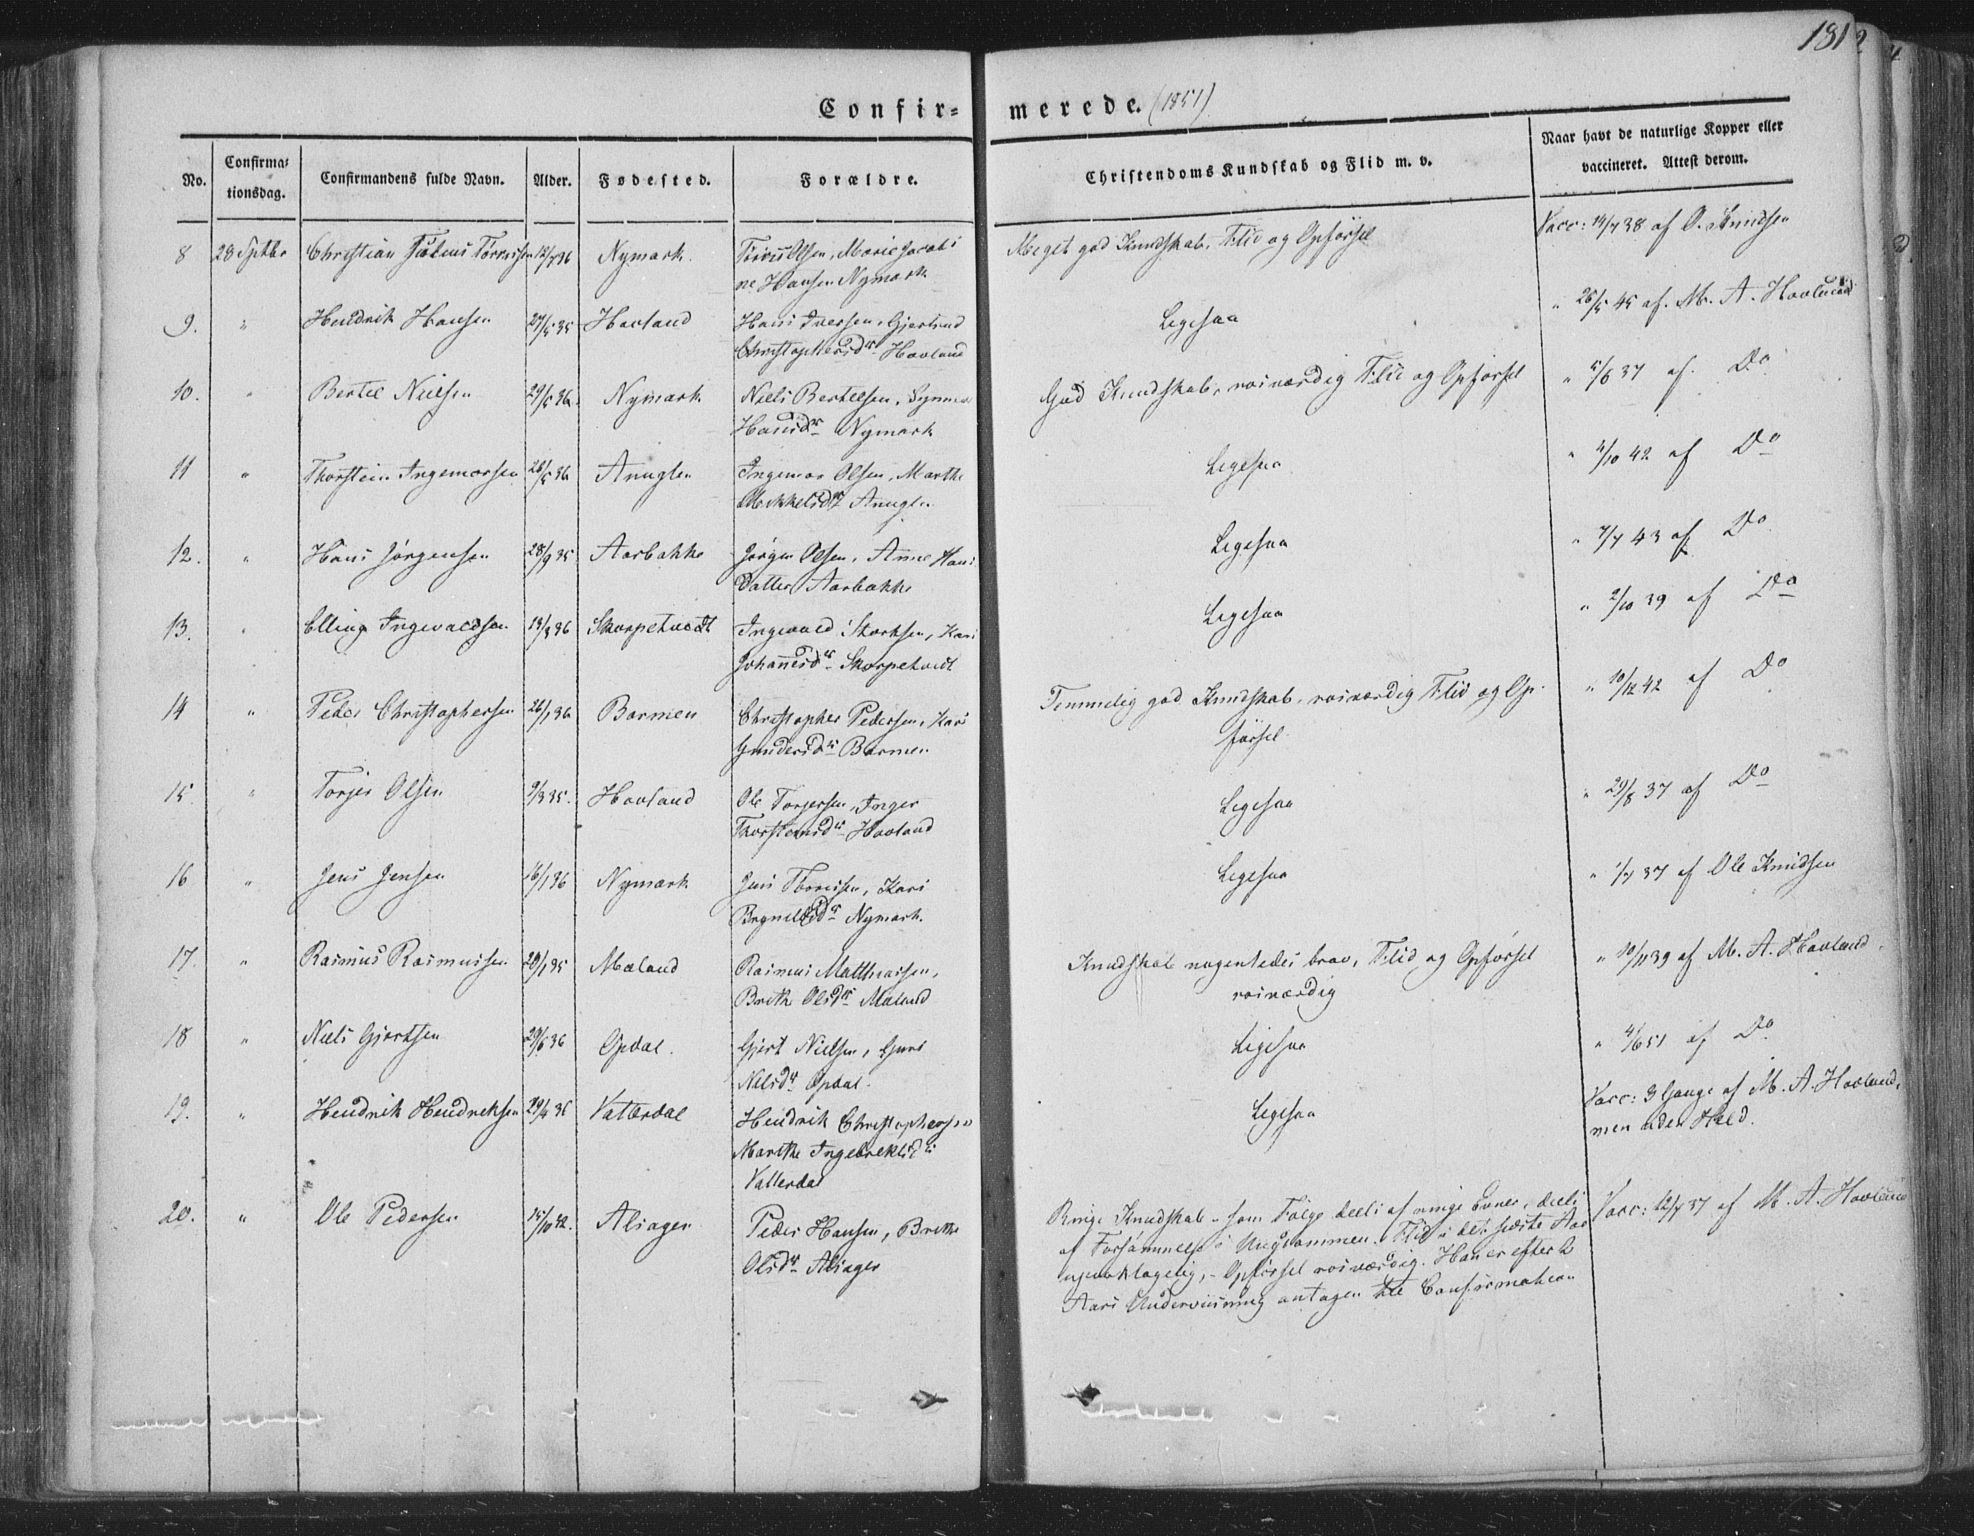 181
Confir-
merede. (1851)
No.
Confirma-
tionsdag.
Confirmandens fulde Navn.
Alder.
Fødested.
Forældre.
Christendoms Kundskab og Flid m. v.
Naar havt de naturlige Kopper eller
vaccineret. Attest derom.
8 28 Septbr Christian 12/7 36 Nymark Olsen, Marie Jacobi
ne Hansen Nymark
Meget god Kundskab, Flid og Opförsel
Vacc: 14/7 38 af O. Knudsen
9. " Hendrik Hansen 27/5 35 Hovland Hans Iversen, Gjertrud
Christophersdr Hovland
Ligesaa
" 26/5 45 af M. A. Hovland
10. " Bertel Nielsen 29/5 36 Nymark Niels Bertelsen, Synneve
Hansdr Nymark
God Kundskab, rosværdig Flid og Opförsel
" 5/6 37 af Do
11 " Thorstein Ingemarsen 26/5 36 Anuglen Ingemar Olsen, Marthe
Mikkelsdr Anuglen
Ligesaa
" 4/10 42 af Do
12. " Hans Jørgensen 28/9 35 Aarbakke Jørgen Olsen, Anne Hans
Datter Aarbakke
Ligesaa
" 7/7 43 af Do
13. " Elling Ingevaldsen 13/3 36 Skorpetvedt Ingevald Storksen, Kari
Johannesdr Skorpetvedt
Ligesaa
" 2/10 39 af Do
14 " Peder Christophersen 26/1 36 Barmen Christopher Pedersen, Kari
Gundersdr Barmen
Temmelig god Kundskab, rosværdig Flid og Op-
førsel
" 10/12 42 af Do
15. " Torjer Olsen 9/3 35. Hovland Ole Torjersen, Inger
Thorsteinsdr Hovland
Ligesaa
" 29/8 37 af Do
16 " Jens Jensen 16/1 36 Nymark Jens Thoresen, Kari
Brynildsdr Nymark.
Ligesaa
" 1/7 37 af Ole Knudsen
17. " Rasmus Rasmussen 20/1 35 Mæland Rasmus Matthiassen,
Brithe Olsdr Mæland
Kundskab nogenledes brav, Flid og Opførsel
rosværdig
" 10/11 39 af M. A. Hovland.
18 " Niels Gjertsen 29/6 36 Opdal. Gjert Nielsen, Guri
Nilsdr Opdal.
Ligesaa
" 4/6 51 af Do
19. " Hendrik Hendriksen 29/4 36 Vatterdal Hendrik Christophersen
Marthe Ingebrektsdr
Vatterdal
Ligesaa
Vacc: 3 Gange af M. A. Hovland,
men uden Held.
20. " Ole Pedersen 15/10 Alsager Peder Hansen, Brithe
Olsdr Alsager
Ringe Kundskab, som Følge deels af ringe Evner, deels
af Forsømmelse i Ungdommen. Flid i det sidste Aar
upaaklagelig, - Opførsel rosværdig. Han er efter 2
Aars Underviisning antagen til Confirmation
Vacc: 12/7 37 af M. A. Hovland